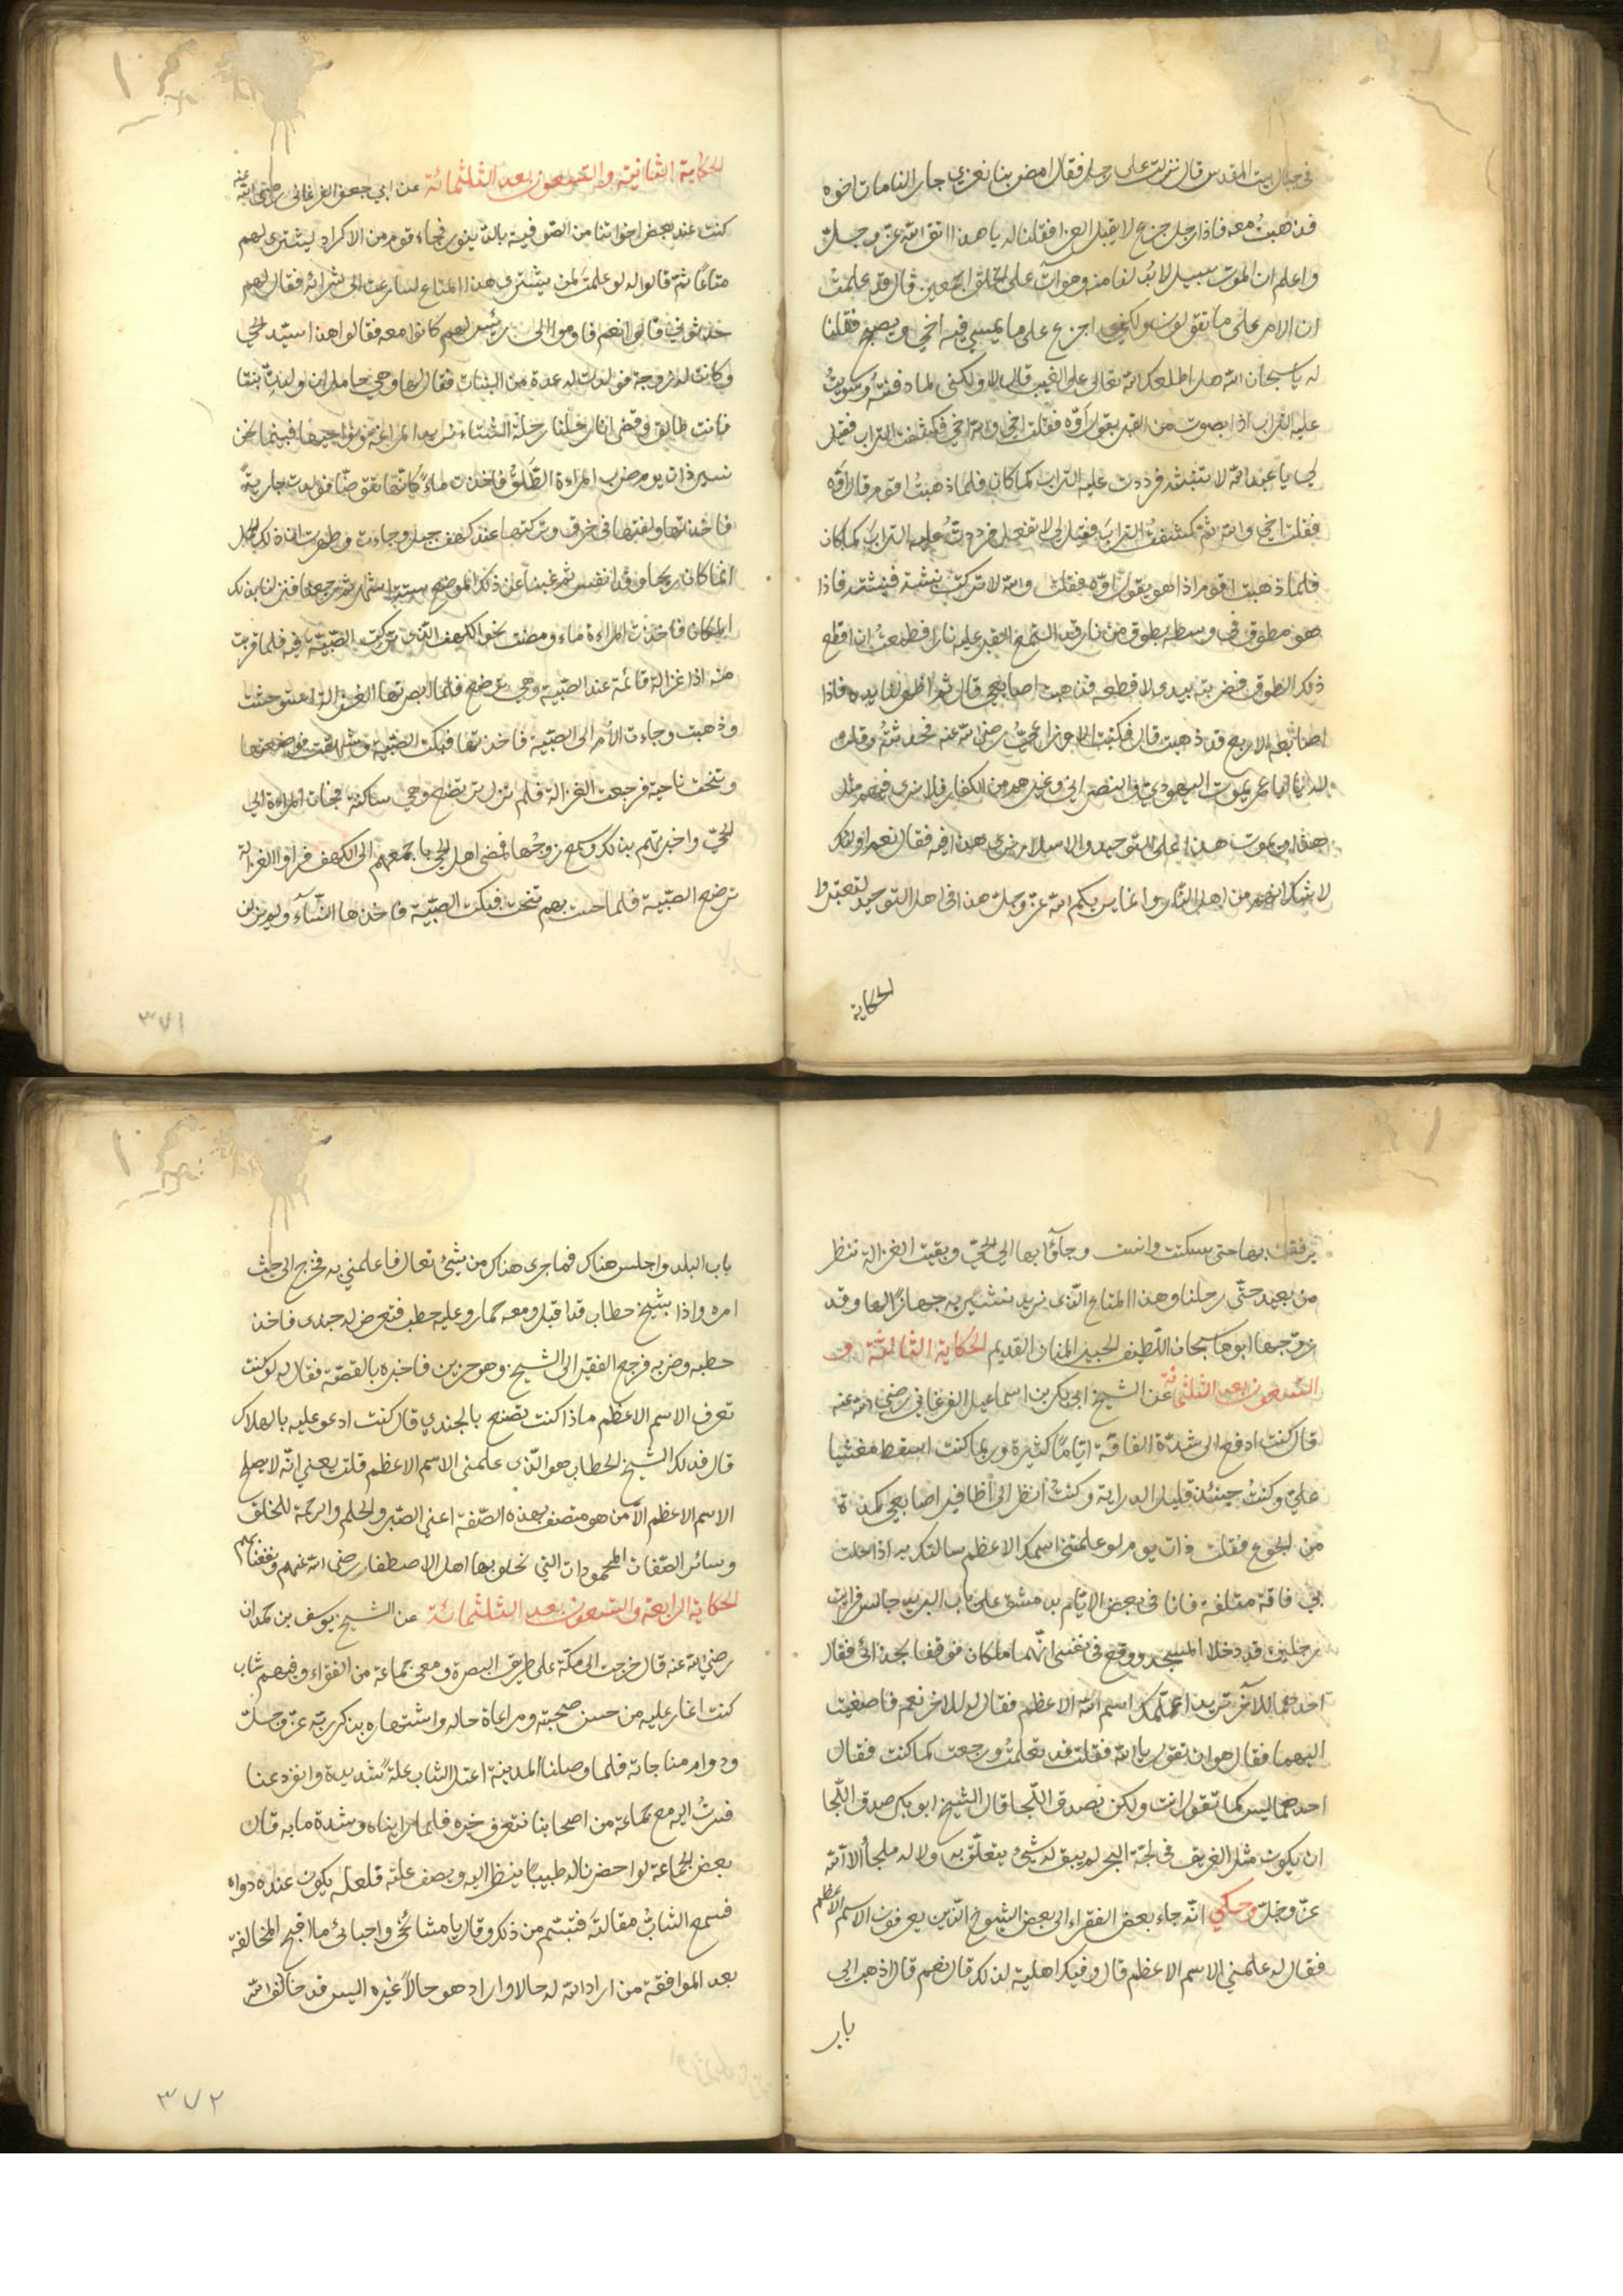 في جبال بيت المقدس قال نزلت على رجل فقال امض بنا نعزي جار النا مات اخوه
فذهبت معه فاذا رجل جزع لا يقبل العزا فقلنا له يا هذا اتق الله عز وجل
واعلم ان الموت سبيل لا بد لنا منه وهو آت على الخلق اجمعين قال قد علمت
ان الامر على ما تقولون ولكني اجزع على ما يمسي فيه اخي ويصبح فقلنا
له يا سبحان الله هل اطلعك الله تعالى على الغيب قال لا ولكني لما دفنته وسويت
عليه التراب اذا بصوت من القبر يقول اوّه فقلت اخي والله اخي فكشفت التراب فقيل
لي يا عبد الله لا تنبشه فرددت عليه التراب كما كان فلما ذهبت اقوم قال اوّه
فقلت اخي والله ثم كشفت التراب فقيل لي لا تفعل فرددت عليه التراب كما كان
فلما ذهبت اقوم اذا هو يقول اوّه فقلت والله لا تركت نبشه فنبشته فاذا
هو مطوق في وسطه بطوق من نار قد التمع القبر عليه نارا فطمعت ان اقطع
ذلك الطوق فضربته بيدي لا قطعه فذهبت اصابعي قال ثم اظهر لنا يده فاذا
اصابعه الاربع قد ذهبت قال فكتبت الاوزاعي رضي الله عنه فحدثته وقلت
له يا ابا عمر يموت اليهودي والنصراني وغيرهم من الكفار فلا نرى فيهم مثل
هذا ويموت هذا على التوحيد والاسلام نرى هذا فيه فقال نعم اولئك
لا شك انهم من اهل النار وانما يريكم الله عز وجل هذا في اهل التوحيد لتعتبروا
الحكاية
الحكاية الثانية والتسعون بعد الثلثمائة عن ابي جعفر الفرغاني رضي الله عنه
كنت عند بعض اخواتنا من الصوفية بالدينور فجاء قوم من الاكراد ليشتري لهم
متاعًا ثم قالوا له لو علمت لمن يشتري هذا المتاع لسارعت الى شرائه فقال لهم
حدثوني قالوا نعم فاوموا الى رئيس لهم كانوا معه فقالوا هذا سيد الحي
وكانت له زوجة فولدت له عدة من البنات فقال لها وهي حامل ان ولدت بنتا
فانت طالق فقضى انا رحلنا رحلة الشتاء نريد المراغة ونواحيها فبينما نحن
نسير ذات يوم ضرب المراة الطلق فاخذت ماءً كانها تقوضا فولدت جارية
فاخذتها ولفتها في خرق وتركتها عند كهف جبل وجاءت وظهرت ان ذلك الحمل
انما كان ريحا وقد انفس ثم غبنا عن ذلك الموضع ستة اشهر ثم رجعنا فنزلنا بذلك
المكان فاخذت المراة ماء ومضت نحو الكهف الذي تركت الصبية فيه فلما قربت
منه اذا غزالة قائمة عند الصبية وهي ترضع فلما ابصرتها الغزالة استوحشت
وذهبت وجاءت الأم الى الصبية فاخذتها فبكت الصبية وشهقت فوضعتها
وتنحت ناحية فرجعت الغزالة فلم تزل ترضع وهي ساكنة فجات المراة الى
الحي واخبرتهم بذلك وسمع زوجها فمضى اهل الحي باجمعهم الى الكهف فراوا الغزالة
ترضع الصبية فلما حست بهم تنحت فبكت الصبية فاخذها النساء ولم يزلن
٣٧١
يرفقن بها حتى سكنت وانست وجاؤا بها الى الحي وبقيت الغزالة تنظر
من بعيد حتى رحلنا وهذا المتاع الذي نريد نشتير به جهازًا لها وقد
زوجها ابوها سبحان اللطيف الخبير المنان القديم الحكاية الثالثة و
التسعون بعد الثلثمائة عن الشيخ ابي بكر بن اسماعيل الفرغاني رضي الله عنه
قال كنت ادفع الى شدة الفاقة اياما كثيرة وربما كنت اسقط مغشيا
علي وكنت حينئذ قليل الدراية وكنت انظر الى اظافير اصابعي مكدة
من الجوع فقلت ذات يوم لو علمتني اسمك الاعظم سالتك به اذا حلت
بي فاقة متلفة فانا في بعض الايام بدمشق على باب البريد جالس فرايت
رجلين قد دخلا المسجد ووقع في نفسي انهما ملكان فوقفا بحذائي فقال
احدهما للآخر تريد ان اعلمك اسم الله الاعظم فقال له الاخر نعم فاصغيت
اليهما فقال هو ان تقول يا الله فقلت قد تعلمت ورجعت كما كنت فقال
احدهما ليس كما تقول انت ولكن بصدق اللجا قال الشيخ ابو بكر صدق اللجا
ان يكون مثل الغريق في لجة البحر لم يبق له شيء يتعلق به ولا له ملجأ الا الله
عز وجل وحكي انه جاء بعض الفقراء الى بعض الشيوخ الذين يعرفون الاسم الاعظم
فقال له علمني الاسم الاعظم قال وفيك اهلية لذلك قال نعم قال اذهب الى
باب
باب البلد واجلس هناك فما جرى هناك من شيء تعال فاعلمني به فخرج الى حيث
امره واذا بشيخ حطاب قد اقبل ومعه حمار وعليه حطب فتعرض له جندي فاخذ
حطبه وضربه فرجع الفقير الى الشيخ وهو حزين فاخبره بالقصة فقال له لو كنت
تعرف الاسم الاعظم ماذا كنت تصنع بالجندي قال كنت ادعو عليه بالهلاك
قال فذلك الشيخ الحطاب هو الذي علمني الاسم الاعظم قلت يعني انه لا يصلح
الاسم الاعظم الا من هو متصف بهذه الصفة اعني الصبر والحلم والرحمة للخلق
وسائر الصفات المحمودات التي تحلو بها اهل الاصطفا رضي الله عنهم ونفعنا بهم
الحكاية الرابعة والتسعون بعد الثلثمائة عن الشيخ يوسف بن حمدان
رضي الله عنه قال خرجت الى مكة على طريق البصرة ومعي جماعة من الفقراء وفيهم شاب
كنت اغار عليه من حسن صحبته ومراعاة حاله واشتهاره بذكر ربه عز وجل
ودوام مناجاته فلما وصلنا المدينة اعتل الشاب علة شديدة وانفرد عنا
فسرت اليه مع جماعة من اصحابنا نتعرف خبره فلما راينا ه وشدة ما به قال
بعض الجماعة لو احضرنا له طبيبًا ينظر اليه ويصف علته فلعله يكون عنده دواء
فسمع الشاب مقالته فتبسم من ذلك وقال يا مشائخي واحبائي ما اقبح المخالفة
بعد الموافقة من اراد الله له حالا واراد هو حالاً غيره اليس قد خالف الله
٣٧٢